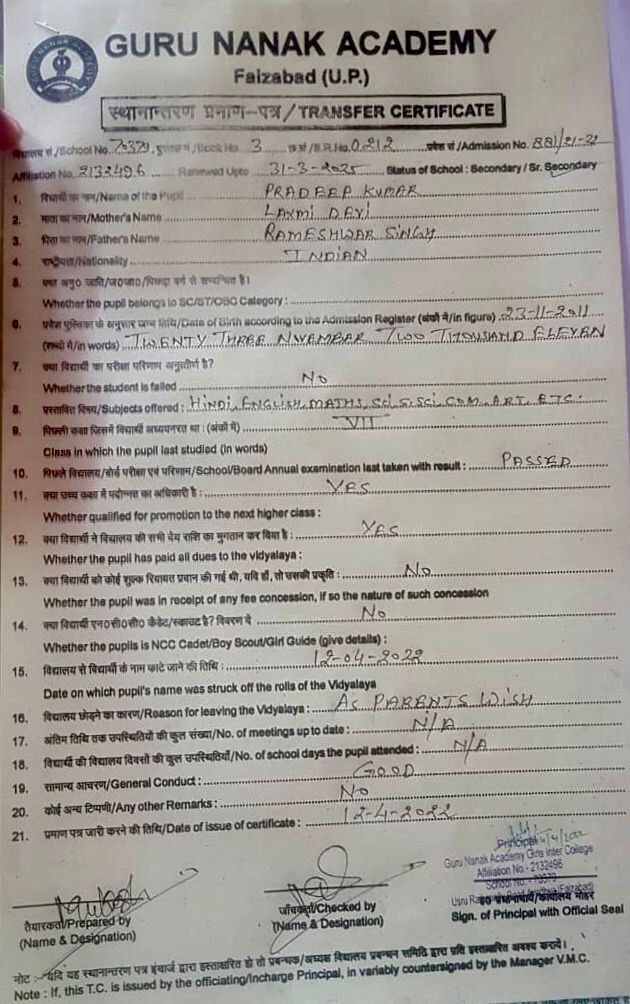 GURU NANAK ACADEMY
Faizabad (U.P.)
स्थानान्तरण प्रमाण-पत्र/TRANSFER CERTIFICATE
विद्यालय सं./School No. 70379 पुस्तक सं /Book No. 3 क्र०सं /S.R.No. 0212 प्रवेश सं/Admission No. 881/21-22
Affiliation No. 2132496 Renewed Upto 31-3-2025 Status of School : Secondary / Sr. Secondary
1. विद्यार्थी का नाम/Name of the Pupil PRADEEP KUMAR
2. माता का नाम/Mother's Name LAXMI DEVI
3. पिता का नाम/Father's Name RAMESHWAR SINGH
4. राष्ट्रीयता/Nationality INDIAN
5. क्या अनु० जाति/ज०जा०/पिछड़ा वर्ग से सम्बन्धित है।
Whether the pupil belongs to SC/ST/OBC Category :
6. प्रवेश पुस्तिका के अनुसार जन्म तिथि/Date of Birth according to the Admission Register (अंकों में/in figure) 23-11-2011
(शब्दों में/in words) TWENTY THREE NWEMBAR TWO THOUSAND ELEVEN
7. क्या विद्यार्थी का परीक्षा परिणाम अनुत्तीर्ण है?
Whether the student is failed No
8. प्रस्तावित विषय/Subjects offered : HINDI, ENGLISH, MATHS, SCI, S.SCI, COM, ART, ETC.
9. पिछली कक्षा जिसमें विद्यार्थी अध्ययनरत था : (अंकों में) VII
Class in which the pupil last studied (in words)
10. पिछले विद्यालय/बोर्ड परीक्षा एवं परिणाम/School/Board Annual examination last taken with result : PASSED
11. क्या उच्च कक्षा में पदोन्नत का अधिकारी है : YES
Whether qualified for promotion to the next higher class :
12. क्या विद्यार्थी ने विद्यालय की सभी देय राशि का भुगतान कर दिया है : YES
Whether the pupil has paid all dues to the vidyalaya :
13. क्या विद्यार्थी को कोई शुल्क रियायत प्रदान की गई थी, यदि हाँ, तो उसकी प्रकृति : No
Whether the pupil was in receipt of any fee concession, if so the nature of such concession
14. क्या विद्यार्थी एन०सी०सी० कैडेट/स्काउट है? विवरण दें No
Whether the pupils is NCC Cadet/Boy Scout/Girl Guide (give details) :
15. विद्यालय से विद्यार्थी के नाम काटे जाने की तिथि : 12-04-2022
Date on which pupil's name was struck off the rolls of the Vidyalaya
16. विद्यालय छोड़ने का कारण/Reason for leaving the Vidyalaya : As PARENTS WISH
17. अंतिम तिथि तक उपस्थितियों की कुल संख्या/No. of meetings up to date : N/A
18. विद्यार्थी की विद्यालय दिवसों की कुल उपस्थितियाँ/No. of school days the pupil attended : N/A
19. सामान्य आचरण/General Conduct : GOOD
20. कोई अन्य टिप्पणी/Any other Remarks : No
21. प्रमाण पत्र जारी करने की तिथि/Date of issue of certificate : 12-4-2022
Principal
Guru Nanak Academy Girls Inter College
Affiliation No.- 2132496
School No.- 70379
तैयारकर्ता/Prepared by
(Name & Designation)
जाँचकर्ता/Checked by
(Name & Designation)
ह० प्रधानाचार्य/कार्यालय मोहर
Sign. of Principal with Official Seal
नोट :- यदि यह स्थानान्तरण पत्र इंचार्ज द्वारा हस्ताक्षरित हो तो प्रबन्धक/अध्यक्ष विद्यालय प्रबन्धन समिति द्वारा प्रति हस्ताक्षरित अवश्य करावें।
Note : If, this T.C. is issued by the officiating/Incharge Principal, in variably countersigned by the Manager V.M.C.